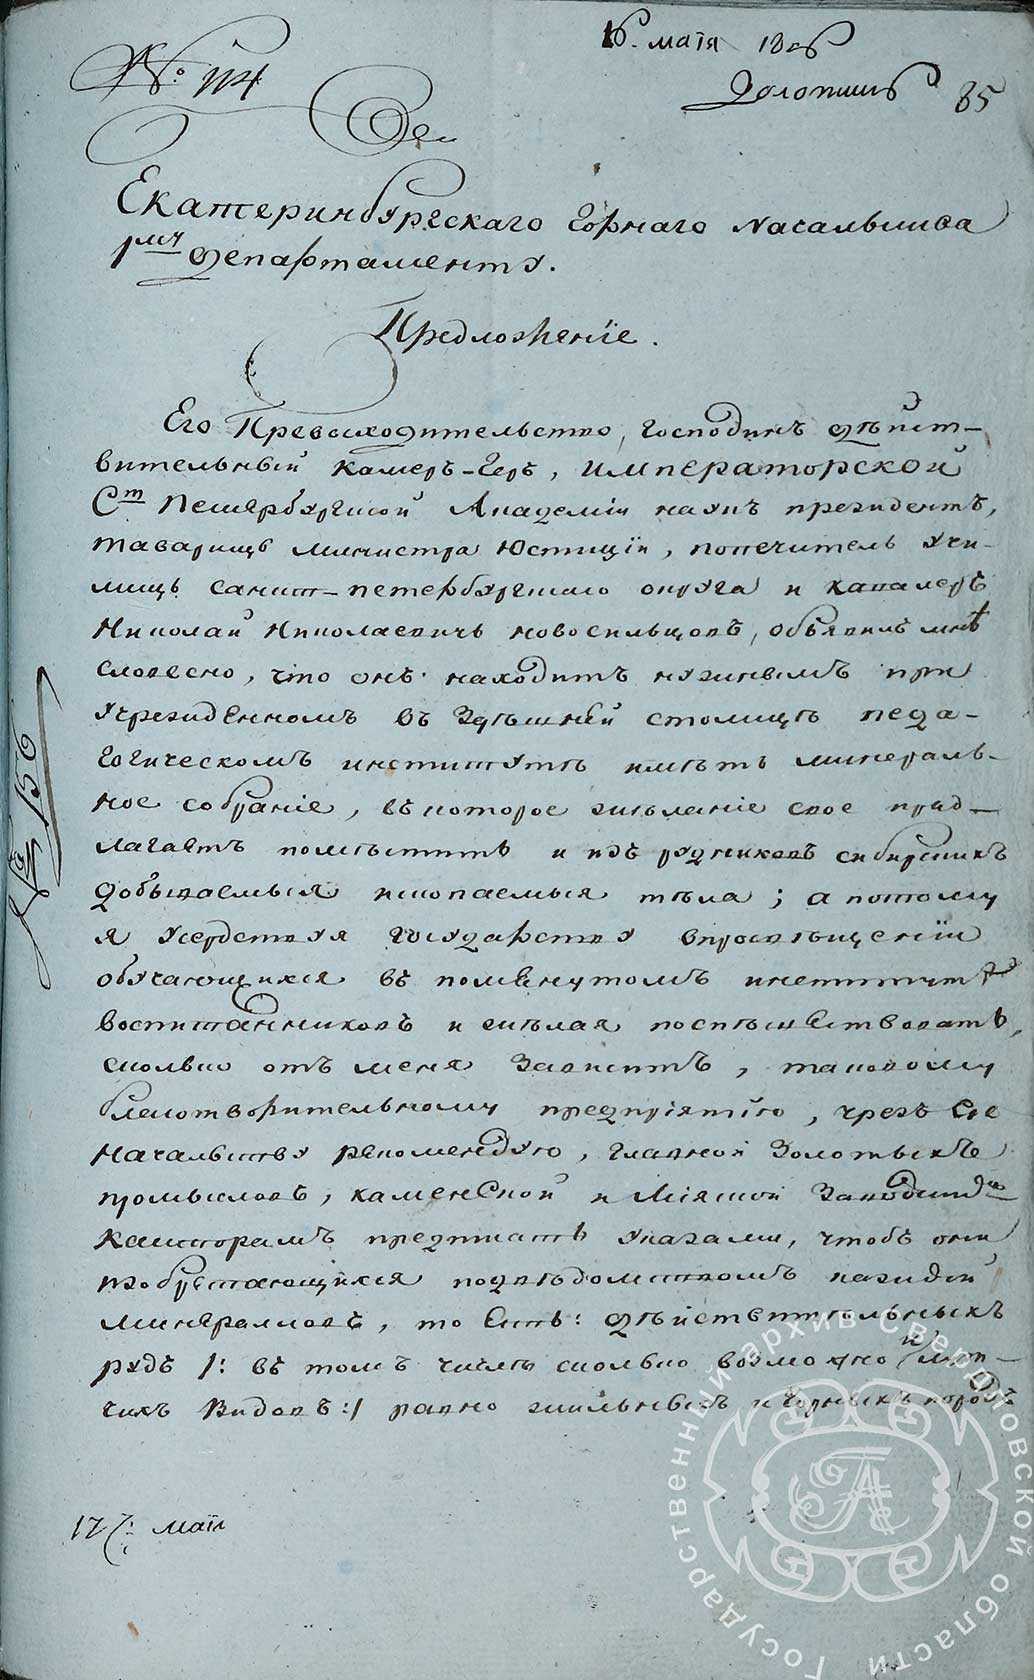 № 114
16. маія 1806
85
Екатеринбургскаго Горнаго Начальства
1му Департаменту.
Предложеніе.
Его Превосходительство, Господинъ Дѣйст-
вительный Камеръ-Геръ, ИМПЕРАТОРСКОЙ
Ст Петербургской Академіи наукъ президентъ,
товарищъ министра Юстиціи, попечитель учи-
лищъ санкт-петербургскаго округа и кавалеръ
Николай Николаевичь Новосильцовъ, объявилъ мнѣ
словесно, что онъ находитъ нужнымъ при
учрежденномъ въ здѣшней столицѣ педа-
гогическомъ институтѣ имѣть минераль-
ное собраніе, въ которое желаніе свое пред-
лагаетъ помѣстить и изъ рудниковъ сибирскихъ
добываемыя ископаемыя тѣла; а потому
я усердствуя государству впросвѣщеніи
обучающихся въ помянутомъ институтѣ
воспитанниковъ и желая поспѣшествовать,
сколько отъ меня зависитъ, таковому
благотворительному предпріятію, чрезъ сіе
Начальству рекомендую, главной Золотыхъ
промысловъ, каменской и Міяской Заводскимъ
канторамъ предписать указами, чтобъ они
изобрѣтающихся подвѣдомствомъ каждой
минералловъ, то есть: дѣйствительныхъ
рудъ /: въ томъ числѣ сколько возможно и
видовъ :/ равно жильныхъ и горныхъ породъ
№ 156
17. маія
Государственный архив Свердловской области
ГА